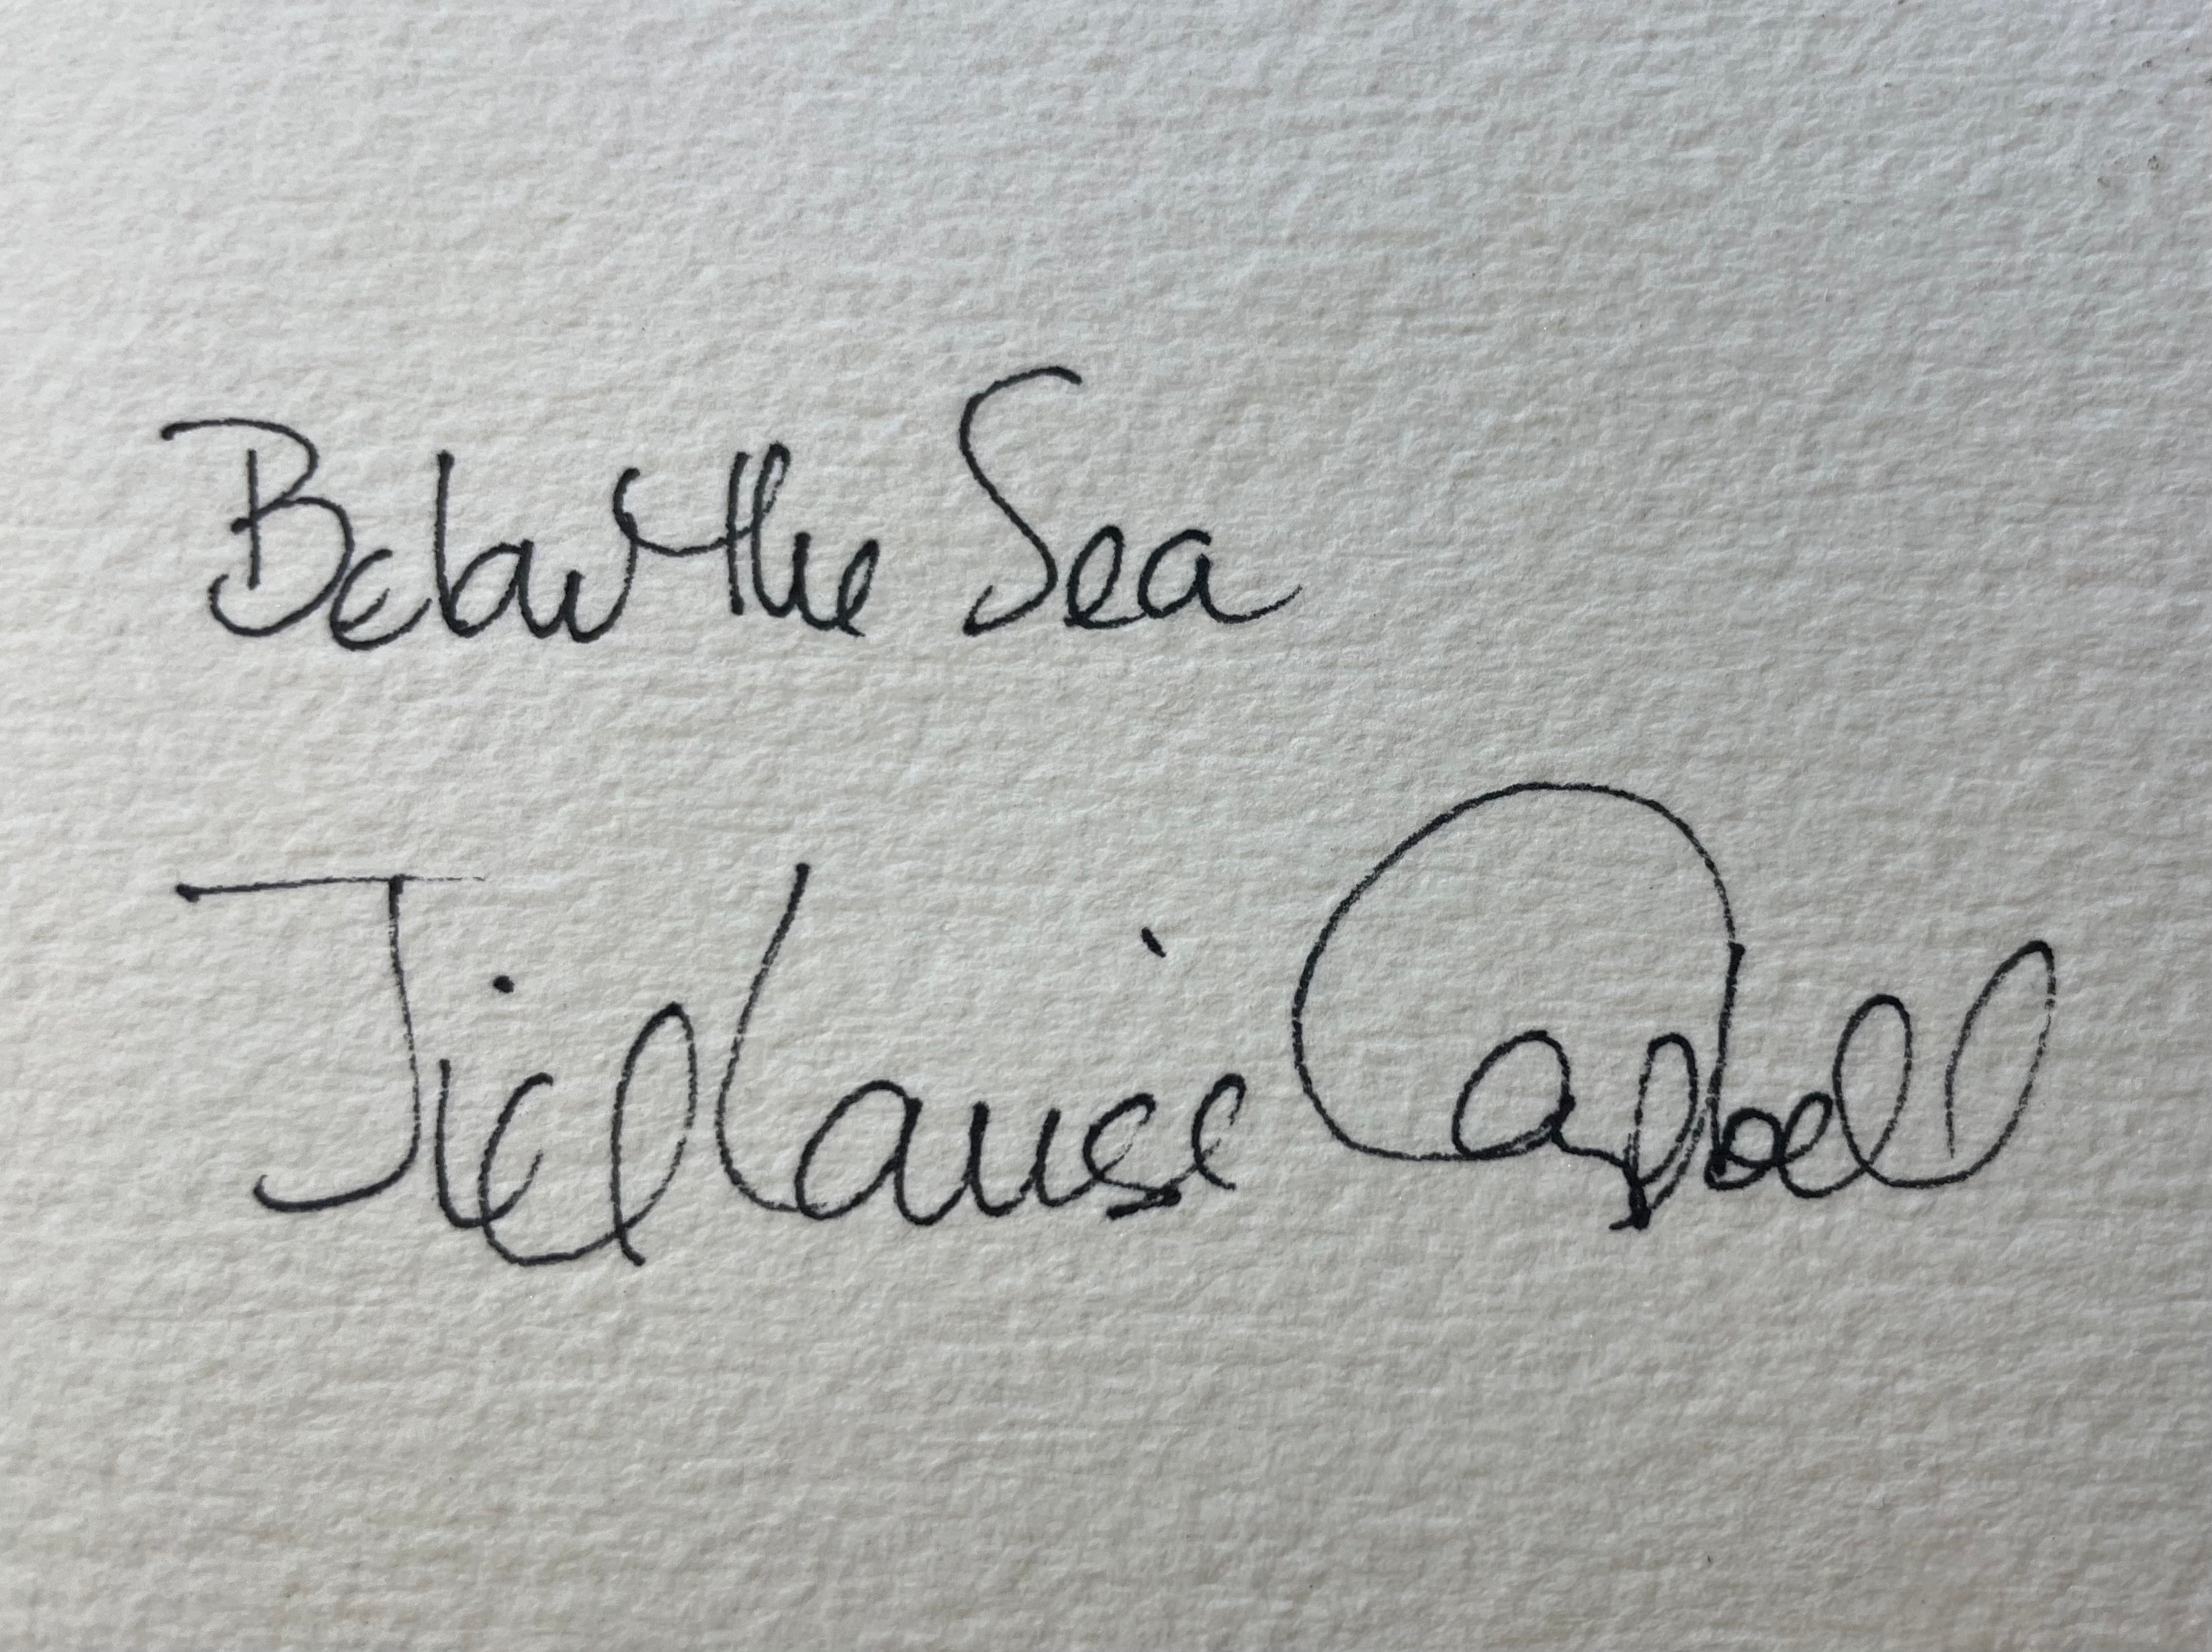 Below the Sea
Jill Louise Campbell